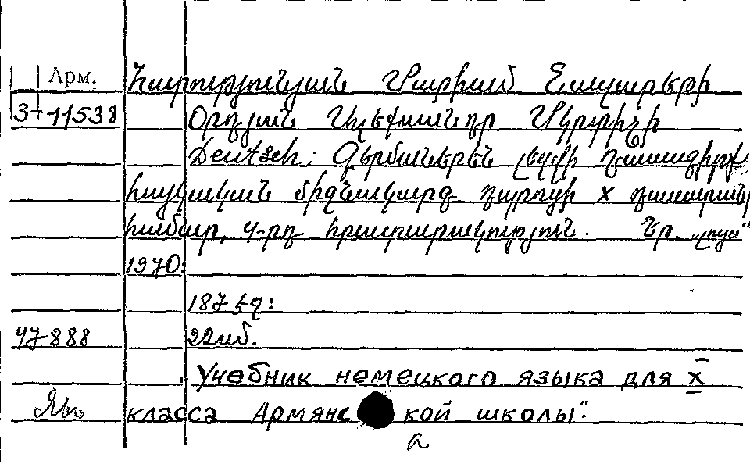 Арм. Հարությունյան Մարիամ Նազարեթի
3-11538 Օրդյան Ալեքսանդր Մկրտիչի
Deutsch: Գերմաներեն լեզվի դասագիրք
հայկական միջնակարգ դպրոցի X դասարանի
համար, 4-րդ հրատարակություն. Եր. „Լույս"
1970:
187 էջ:
47888 22սմ.
„Учебник немецкого языка для X
класса Армянс кой школы".
а